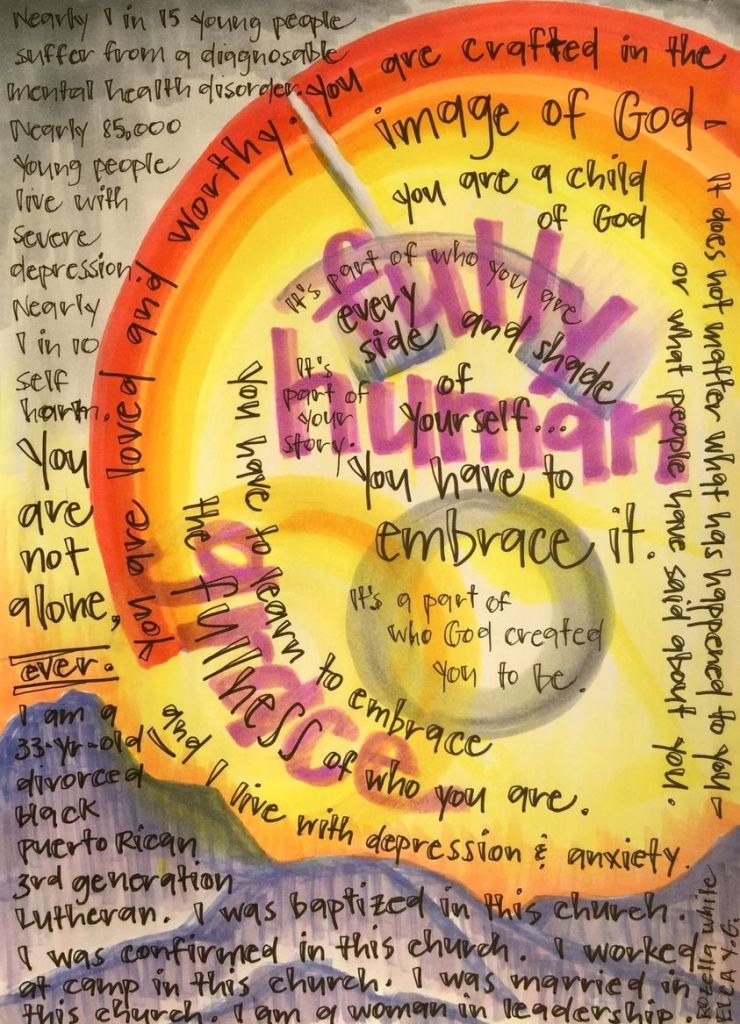 Nearly 1 in 15 young people
suffer from a diagnosable
mental health disorder.
Nearly 85,000
young people
live with
severe
depression.
Nearly
1 in 10
self
harm.
You
are
not
alone,
ever.
I am a
33-yr-old
divorced
black
Puerto Rican
3rd generation
Lutheran. I was baptized in this church.
I was confirmed in this church. I worked
at camp in this church. I was married in
this church. I am a woman in leadership.
and I live with depression & anxiety.
You are loved and worthy. You are crafted in the
image of God-
you are a child
of God
It does not matter what has happened to you-
or what people have said about you.
fully
human
It's part of who you are
It's
part of
your
story.
every
side and shade
of
yourself...
You have to
embrace it.
It's a part of
who God created
you to be.
You have to learn to embrace
the fullness of who you are.
grace
Rozella White
ELCA Y.G.